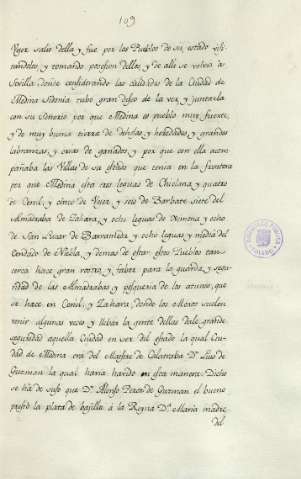 109
Vejer salio della, y fue por los Pueblos de su estado visi-
tandolos, y tomando posesion dellos, y de alli se volvio a
Sevilla donde considerando las calidades de la Ciudad de
Medina Sidonia tubo gran deseo de la ver, y juntarla
con su Condado por que Medina es pueblo muy fuerte,
y de muy buena tierra de dehesas, y heredades, y grandes
labranzas, y crias de ganados, y por que con ella acom
pañaba las Villas de su estado que tenia en la frontera
por que Medina esta tres leguas de Chiclana, y quatro
de Conil, y cinco de Vejer, y seis de Barbate, siete del
Almadraba de Zahara, y ocho leguas de Ximena, y ocho
de San Lucar de Barrameda, y ocho leguas y media del
Condado de Niebla, y demas de estar estos Pueblos tan
cerca hace gran rostro, y fabor para la guarda, y segu
ridad de las Almadrabas, y pesqueria de los atunes, que
se hace en Conil, y Zahara, donde los Moros suelen
venir algunas veces, y llebar la gente dellas dale grande
seguridad aquella Ciudad en ser del estado la qual Ciu-
dad de Medina era del Maestre de Calatraba Dn. Luis de
Guzman la qual havia havido en esta manera. Dicho
se ha de suso que Dn. Alonso Perez de Guzman el bueno
prestó la plata de bajilla á la Reyna Da. Maria madre
del